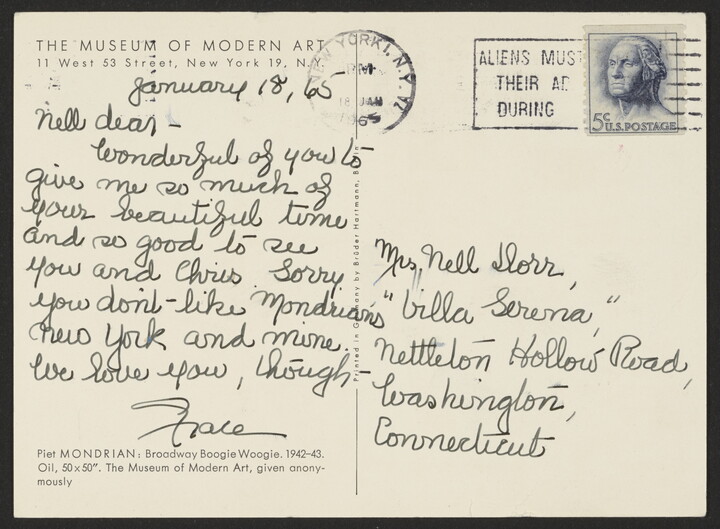 THE MUSEUM OF MODERN ART
11 West 53 Street, New York 19, N.Y.
January 18, 65
Nell dear -
Wonderful of you to
give me so much of
your beautiful time
and so good to see
you and Chris. Sorry
you don't like Mondrian's
New York and mine.
We love you, though -
Grace
Piet MONDRIAN: Broadway Boogie Woogie. 1942–43.
Oil, 50x50". The Museum of Modern Art, given anony-
mously
Printed in Germany by Brüder Hartmann, Berlin
NEW YORK 1, N.Y.
PM
18 JAN
1965
ALIENS MUST
THEIR AD
DURING
5¢ U.S. POSTAGE
Mrs. Nell Dorr,
"Villa Serena,"
Nettleton Hollow Road,
Washington,
Connecticut